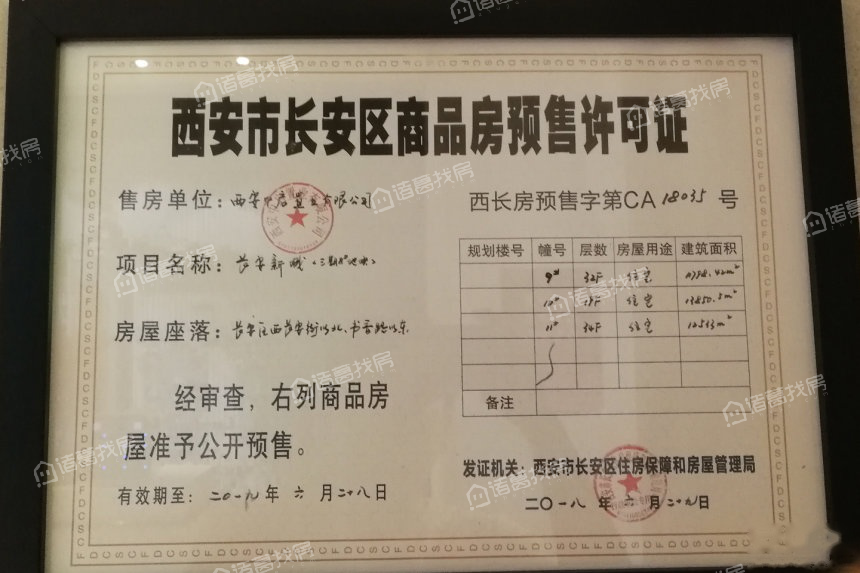 西安市长安区商品房预售许可证
售房单位：西安 置业有限公司
西长房预售字第CA 18035 号
项目名称：长安新城
规划楼号 幢号 层数 房屋用途 建筑面积
9# 32F 住宅
10# 18F 住宅 13850.5m²
11# 34F 住宅 12513m²
备注
房屋座落：长安区西长安街以北、书香路以东
经审查，右列商品房
屋准予公开预售。
有效期至：二〇一九年 六 月二十八日
发证机关：西安市长安区住房保障和房屋管理局
二〇一八 年 六 月二十九日
诸葛找房